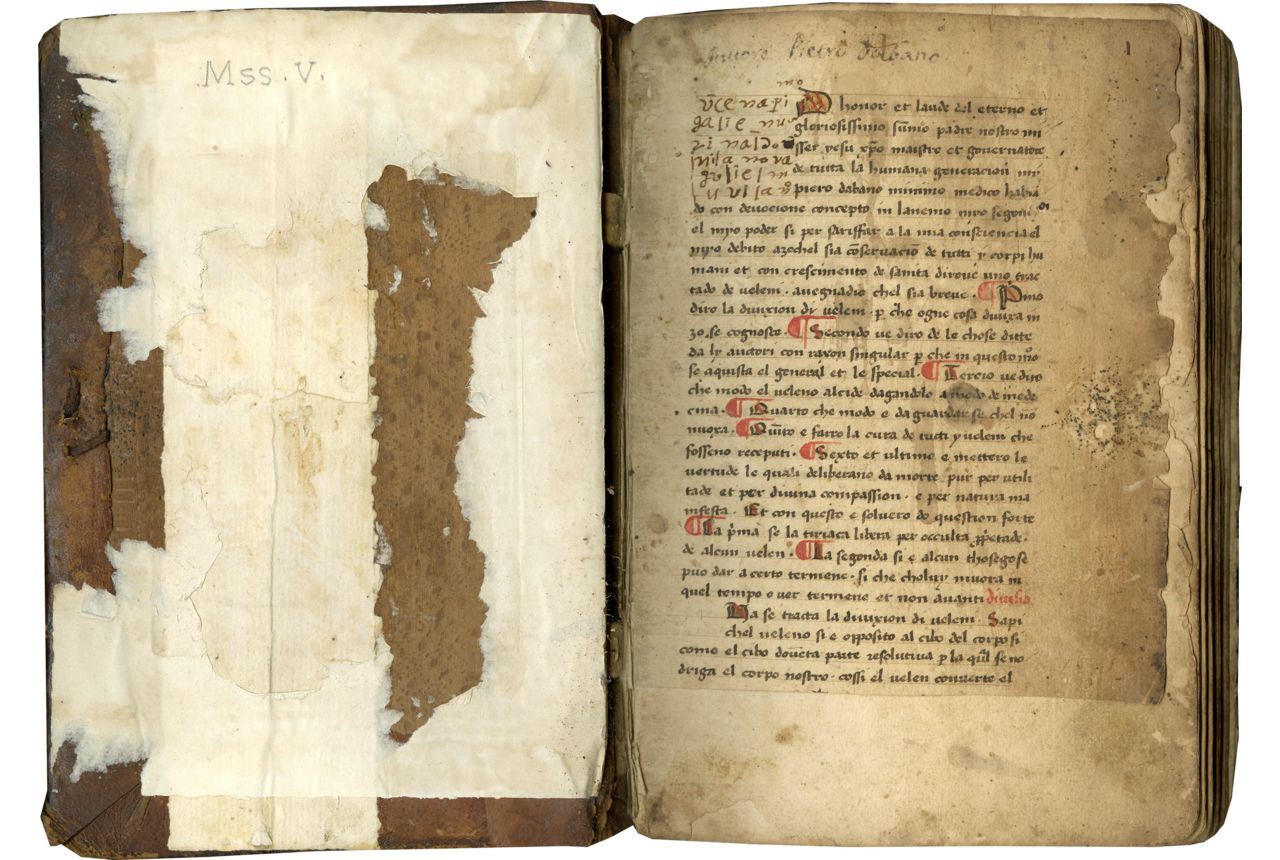 Mss. V.
Autore Pietro Dabano
1
mo
uce napi
galie nu
rinaldo
nila nova
gulielm
D honor et laude del eterno et
gloriosissimo sumo padre nostro mi
sser yesu xpo maistro et governatore
de tutta la humana generacion my
piero dabano minimo medico habia
do con devocione concepto in lanemo myo segon
el myo poder si per satisffar a la mia consciencia el
myo debito azochel sia conservacio de tutti y corpi hu
mani et con crescimento de sanita dirove uno trac
tado de veleni . avegnadio chel sia breve . ¶ Pimo
diro la divixion di veleni . p che ogne cosa divixa in
zo se cognosce . ¶ Secondo ve diro de le chose ditte
da ly auctori con raxon singular p che in questo mo
se aquista el general et le special . ¶ Tercio ve diro
che modo el veleno alcide dagandolo a modo de mede
cina . ¶ Quarto che modo e da guardar se chel no
nuoxa . ¶ Quito e farro la cura de tutti y veleni che
fosseno receputi . ¶ Sexto et ultimo e mettero le
vertude le quali deliberano da morte pur per utili
tade et per divina compassion . e per natura ma
nifesta . Et con questo e solvero do question forte
¶ La pma se la tiriaca libera per occulta ppetade .
de alcun velen . ¶ La segonda si e alcun thosegose
puo dar a certo termene . si che choluy muora in
quel tempo o ver termene et non avanti divisio
Qa se tracta la divixion di veleni . Sapi
chel veleno si e opposito al cibo del corpo si
como el cibo doveta parte resolutiva p la qul se no
driga el corpo nostro . cossi el velen converte el